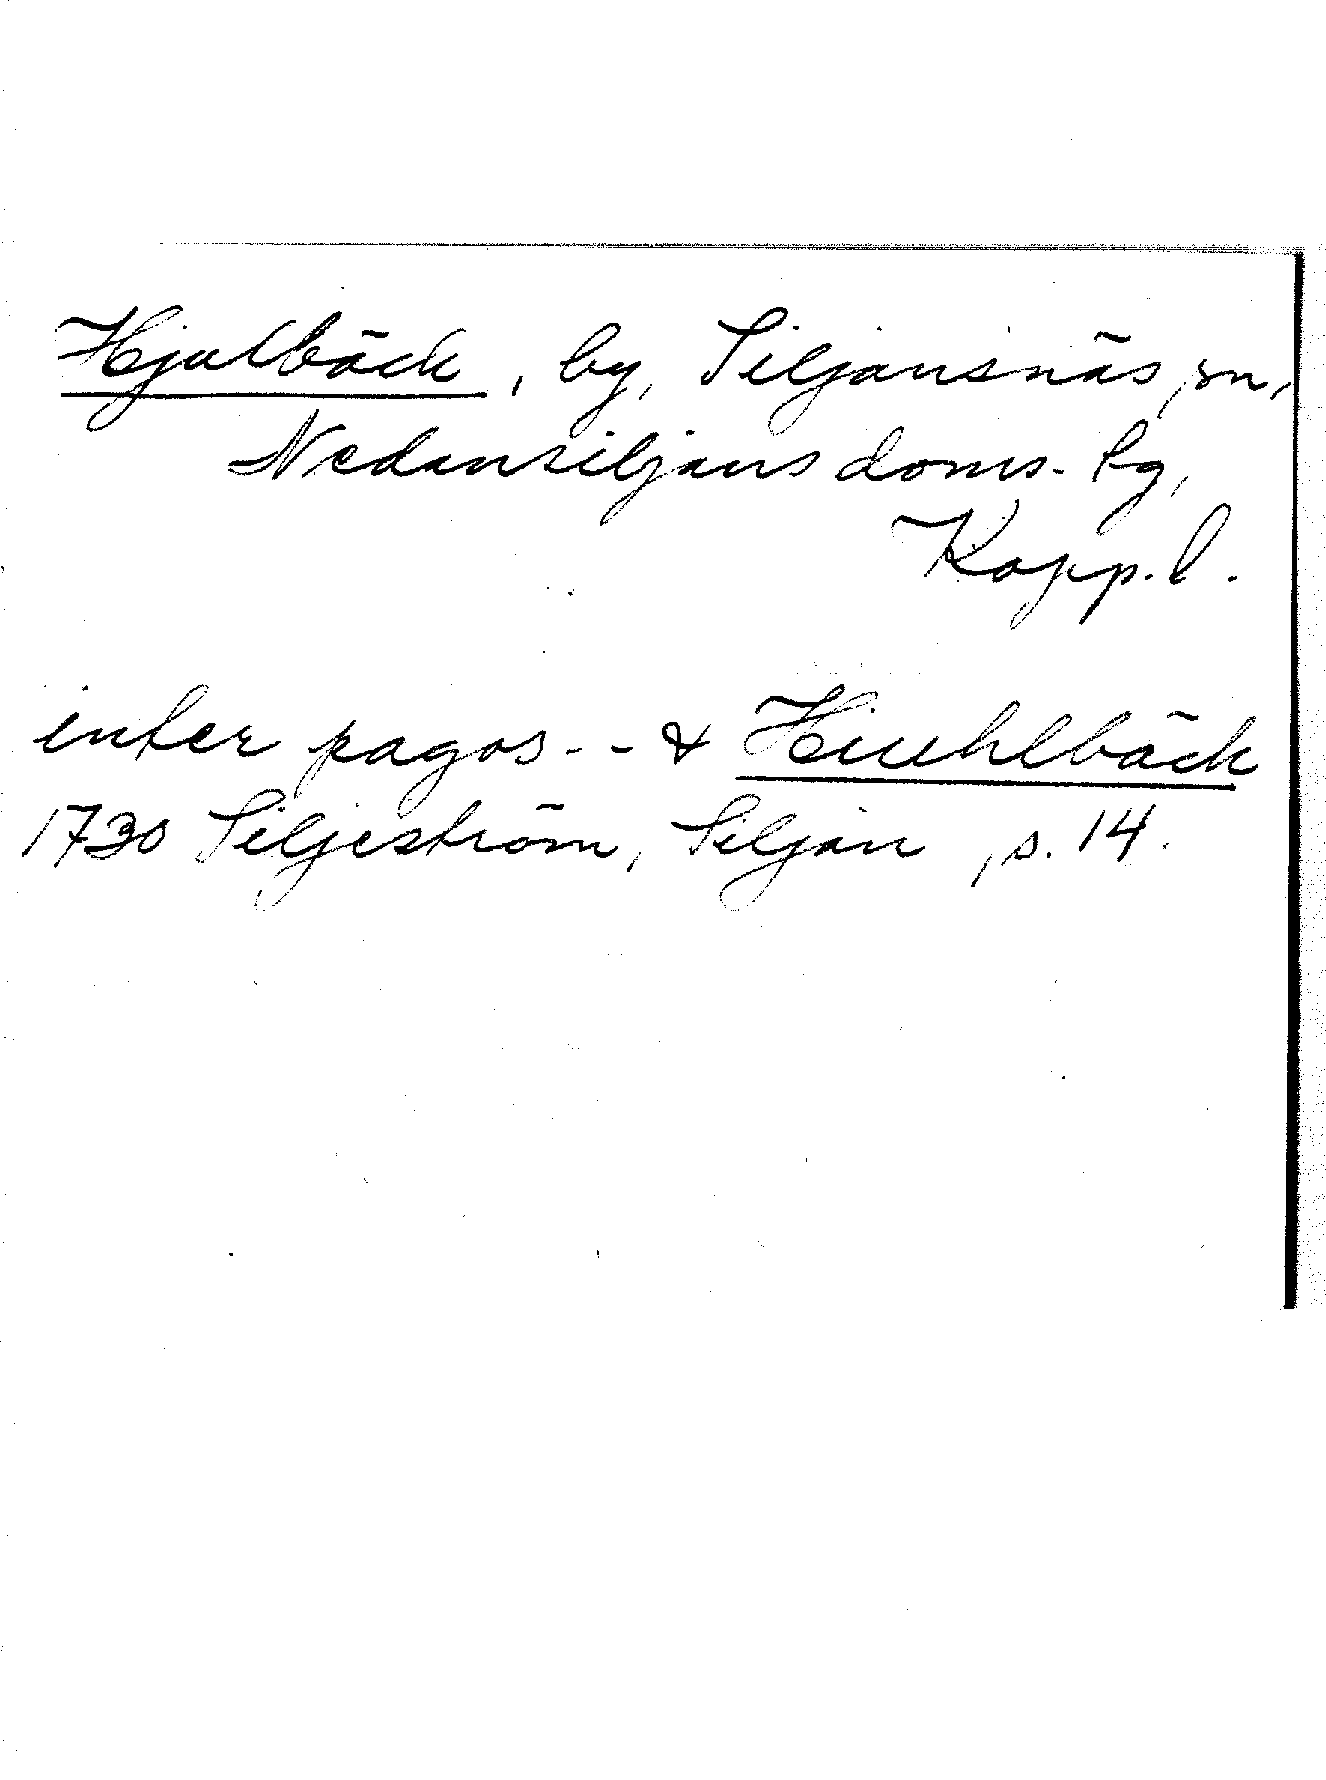 Hjulbäck, by, Siljansnäs sn,
Nedansiljans doms. lg,
Kopp. l.
inter pagos - - & Hiuhlbäck
1730 Siljeström, Siljan, s. 14.